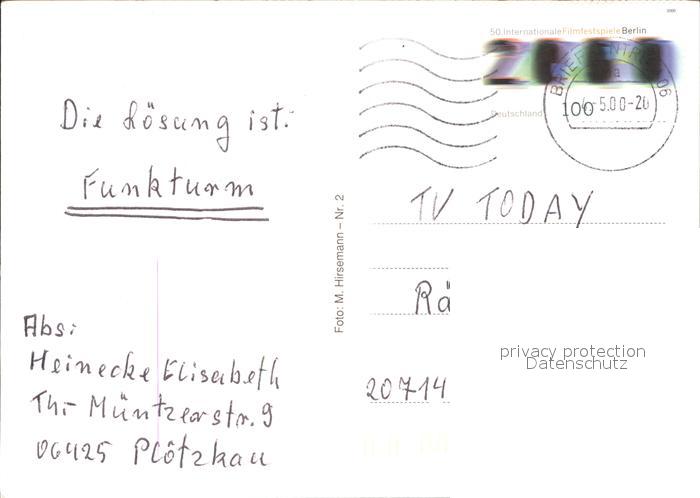 50. Internationale Filmfestspiele Berlin
2000
Deutschland
100
BRIEFZENTRUM 06
-5.00-20
Die Lösung ist:
Funkturm
Foto: M. Hirsemann – Nr. 2
TV TODAY
Rä
20714
Abs:
Heinecke Elisabeth
Th.- Müntzerstr. 9
06425 Plötzkau
privacy protection
Datenschutz